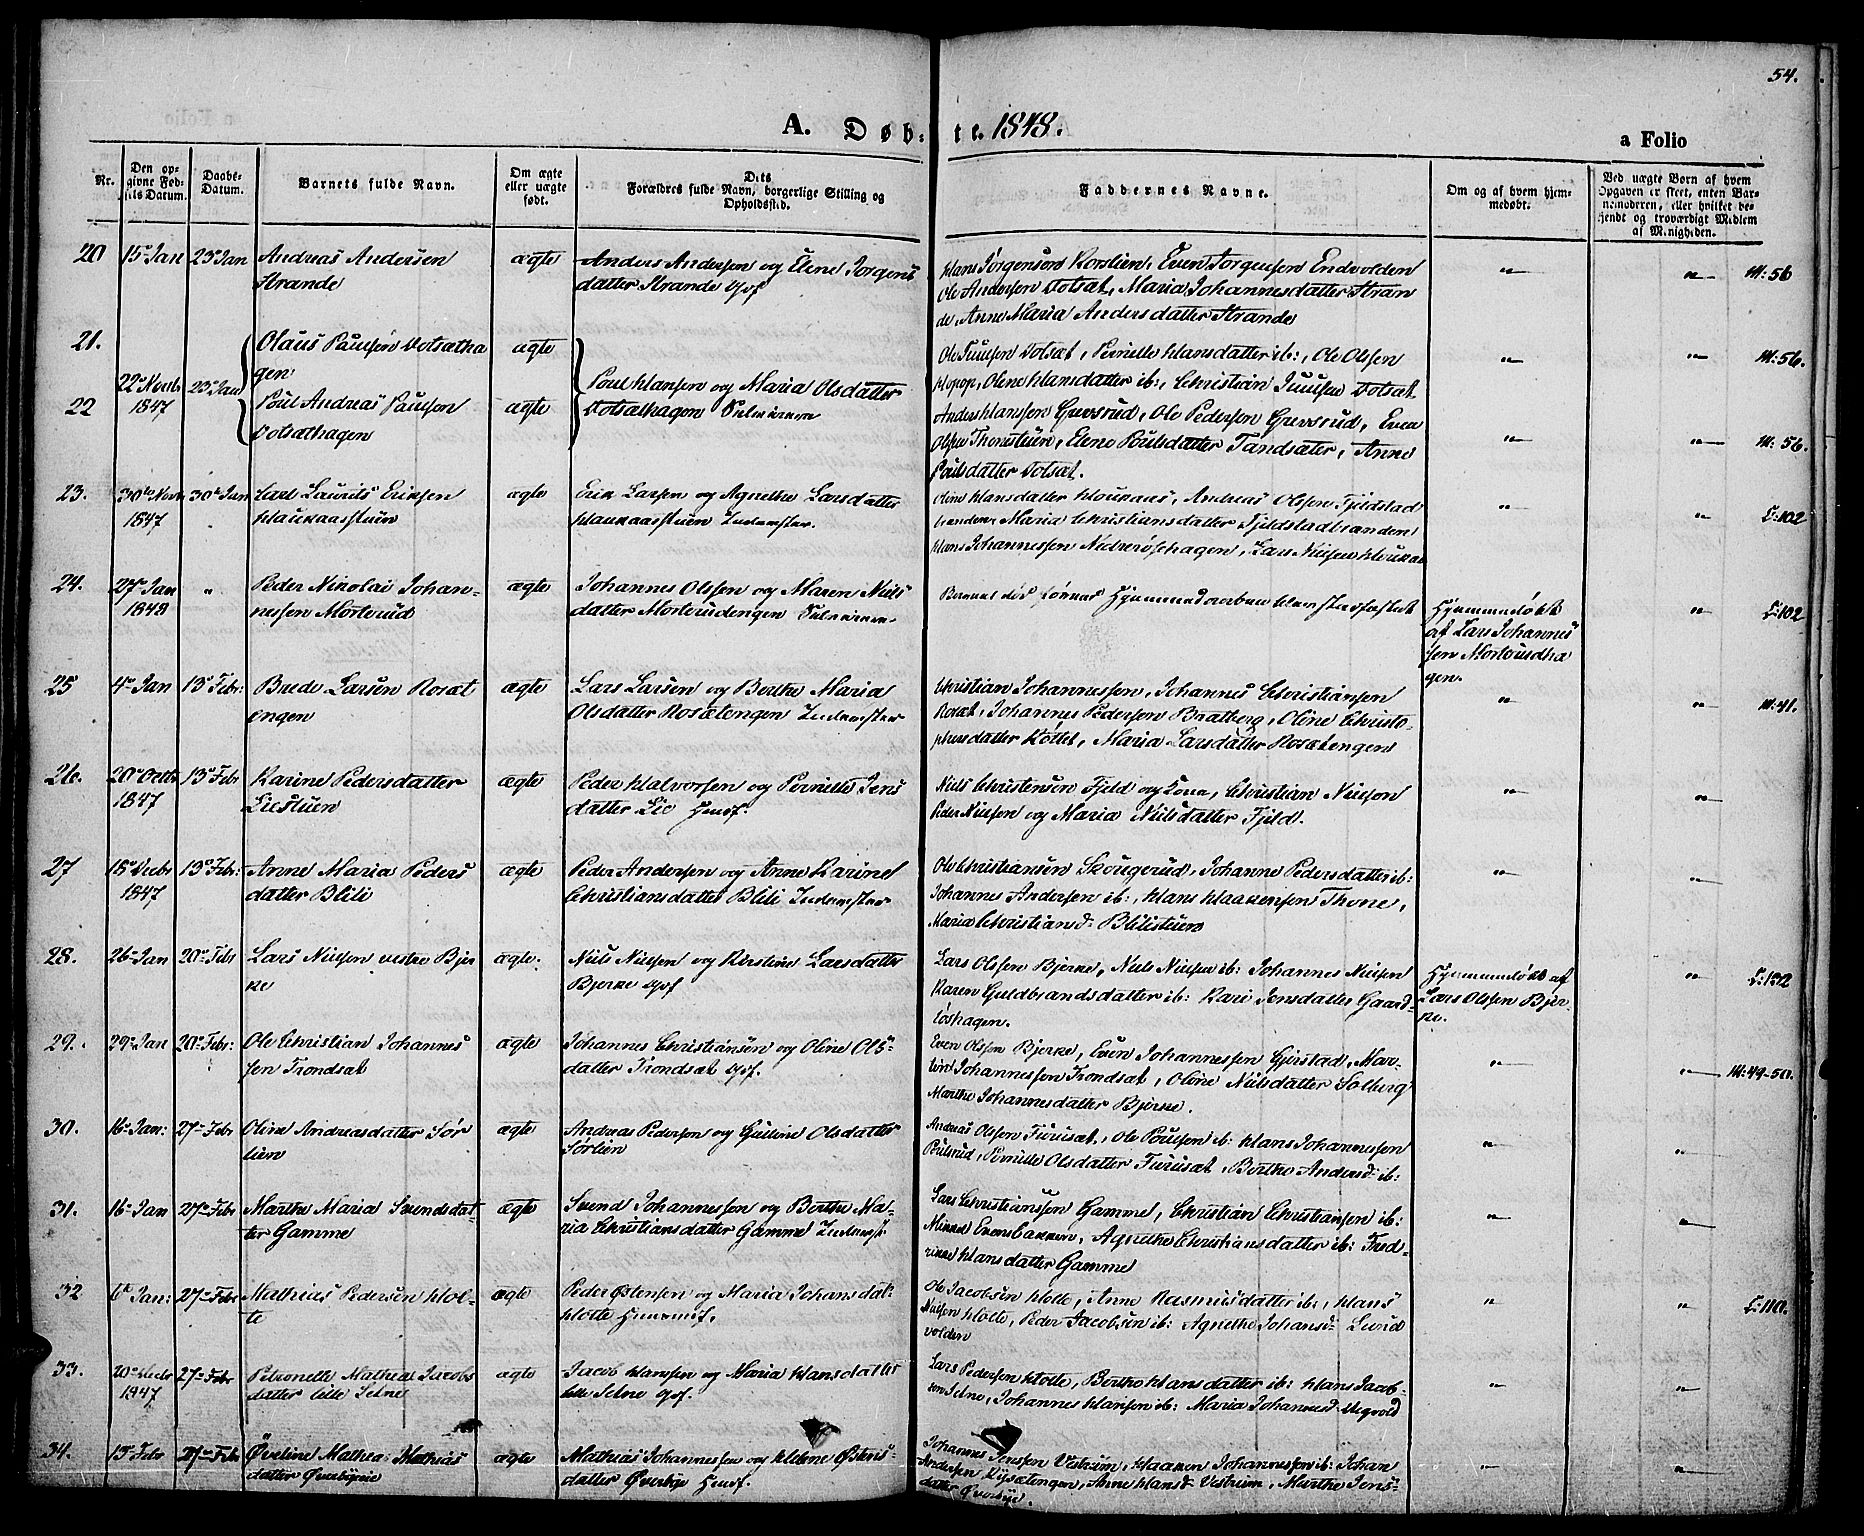 54.
A. Døb- te. 1848.
a Folio
Nr.
Den op-
givne Fød-
sels Datum.
Daabs-
Datum.
Barnets fulde Navn.
Om ægte
eller uægte
født.
Dets
Forældres fulde Navn, borgerlige Stilling og
Opholdssted.
Faddernes Navne.
Om og af hvem hjem-
medøbt.
Ved uægte Børn af hvem
Opgaven er skeet, enten Bar-
nemoderen, eller hvilket be-
kjendt og troværdigt Medlem
af Menigheden.
20 15de Jan 23de Jan Andreas Andersen
Strande
ægte
Anders Andersen og Elene Jørgens
datter Strande
Hans Jørgensen Korslien, Even Jørgensen Endvolden
Ole Andersen Totsæt, Maria Johannesdatter Stran
de, Anne Maria Andersdatter Strande
" " M: 56
21.
22de Novbr
1847
23de Jan
Olaus Paulsen Totsætha
gen
ægte
22
Poul Andreas Paulsen
Totsæthagen
ægte
Poul Hansen og Maria Olsdatter
Totsæthagen
Ole Paulsen Totsæt, Pernille Hansdatter ib:, Ole Olsen
Hopop, Oline Hansdatter ib:, Christian Juulsen Totsæt
" " M: 56.
Anders Hansen Grevsrud, Ole Pedersen Grevsrud, Even
Olsen Thonstuen, Elene Poulsdatter Tandsæter, Anne
Poulsdatter Totsæt.
" " M: 56.
23. 30te Novbr
1847
30te Jan Carl Laurits Eriksen
Haukaasstuen
ægte
Erik Larsen og Agnethe Larsdatter
Haukaasstuen Inderster.
Oline Hansdatter Houkaas, Andreas Olsen Fjeldstad
branden, Maria Christiansdatter Fjeldstadbranden
Hans Johannessen Hagen, Lars Nielsen Houkaas
" " L: 102
24. 27de Jan
1848
" Peder Nikolai Johan-
nessen Morterud
ægte
Johannes Olssen og Maren Niels
datter Morterudengen
Barnet døde
Hjemmedøbt
af Lars Johannes
sen Morterudha
gen.
" L: 102
25 4de Jan 13de Febr: Brede Larsen Rosæt
engen
ægte
Lars Larsen og Berthe Maria
Olsdatter Rosætengen Inderster
Christian Johannessen, Johannes Christiansen
Rosæt, Johannes Pedersen Bratberg, Oline Christo-
phersdatter Kollet, Maria Larsdatter Rosætengen
" " M: 41.
26. 20de Octbr
1847
13de Febr Karine Pedersdatter
Liestuen
ægte
Peder Halvorsen og Pernille Jens
datter Lie Huusf.
Niels Christensen Fjeld og Kone, Christian Nielsen
Peder Nielsen og Maria Nielsdatter Fjeld.
" "
27 15de Decbr
1847
13de Febr: Anne Maria Peders
datter Blili
ægte
Peder Andersen og Anne Karine
Christiansdatter Blili Inderster
Ole Christiansen Skougerud, Johanne Pedersdatter ib:
Johannes Andersen ib:, Hans Haakensen Thone,
Maria Christiansd: Blilistuen
" "
28. 26de Jan 20de Febr Lars Nielsen vestre Bjer
ke
ægte.
Niels Nielsen og Kirstine Larsdatter
Bjerke
Lars Olssen Bjerke, Niels Nielsen ib: Johannes Nielsen
Karen Guldbrandsdatter ib: Kari Jensdatter Gaard-
løshagen.
Hjemmedøbt af
Lars Olssen Bjer-
ke.
" L: 132
29. 29de Jan 20de Febr: Ole Christian Johannes
sen Trondsæt
ægte
Johannes Christiansen og Oline Ols-
datter Trondsæt
Even Olssen Bjerke, Even Johannessen Gjerstad, Mar-
tin Johannessen Trondsæt, Oline Nielsdatter Solberg
Marthe Johannesdatter Bjerke.
" " M: 49-50.
30. 16de Jan: 27de Febr Oline Andreasdatter Sør
lien
ægte
Andreas Pedersen og Guline Olsdatter
Sørlien
Andreas Olssen Furusæt, Ole Poulsen ib: Hans Johannessen
Poulsrud, Pernille Olsdatter Furusæt, Berthe Andersd: ib:
" "
31. 16de Jan 27de Febr Marthe Maria Svendsdat
ter Gamme
ægte
Svend Johannessen og Berthe Ma-
ria Christiansdatter Gamme Inderst.
Lars Christianssen Gamme, Christian Christiansen ib:
Mikkel Evensbakken, Agnethe Christiansdatter ib: Fred-
rikke Hansdatter Gamme
" "
32 6te Jan: 27de Febr Mathias Pedersen Hol-
te
ægte
Peder Østensen og Maria Johansdat:
Holte Huusmf.
Ole Jacobsen Holte, Anne Rasmusdatter ib:, Hans
Nielsen Holte, Peder Jacobsen ib: Agnethe Johansd: Lund
volden
" " L: 110.
33. 20de Decbr
1847
27de Febr Petronelle Mathea Jacobs
datter lille Selne
ægte
Jacob Hansen og Maria Hansdatter
lille Selne
Lars Pedersen Holte, Berthe Hansdatter ib: Hans Jacob-
sen Selne, Johannes Hansen ib: Maria Johannesd:
" "
34. 13de Febr 27de Febr Øveline Mathea Mathias
datter Øverbyeie
ægte
Mathias Johannessen og Helene Østens-
datter Øverbye Huusf.
Johannes Jenssen Vestrum, Haaken Johannessen ib: Johan
Andersen, Anne Hansd: Vestrum, Marthe Jens-
datter Øverbye.
" "